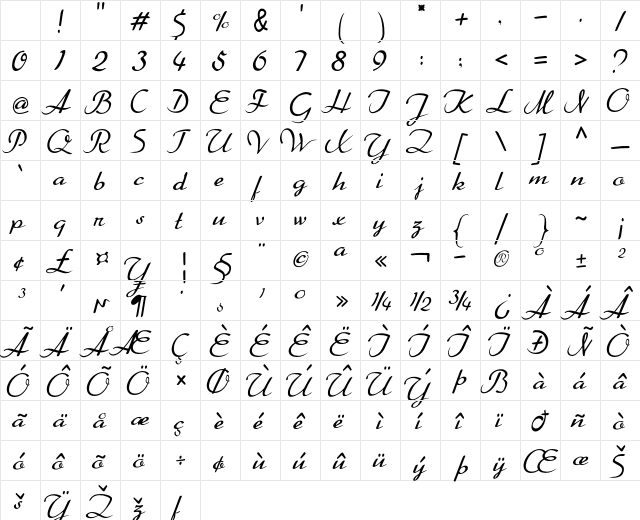 ! " # $ % & ' ( ) * + , - . /
0 1 2 3 4 5 6 7 8 9 : ; < = > ?
@ A B C D E F G H I J K L M N O
P Q R S T U V W X Y Z [ \ ] ^ _
` a b c d e f g h i j k l m n o
p q r s t u v w x y z { / } ~ ¡
¢ £ ¤ ¥ ¦ § ¨ © ª « ¬ - ® ° ± ²
³ ´ ¶ · ¸ ¹ º » ¼ ½ ¾ ¿ À Á Â
Ã Ä Å Æ Ç È É Ê Ë Ì Í Î Ï Ð Ñ Ò
Ó Ô Õ Ö × Ø Ù Ú Û Ü Ý Þ ß à á â
ã ä å æ ç è é ê ë ì í î ï ð ñ ò
ó ô õ ö ÷ ø ù ú û ü ý þ ÿ Œ œ Š
š Ÿ Ž ž ƒ